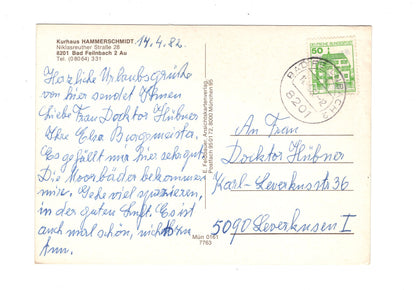 Kurhaus HAMMERSCHMIDT
Niklasreuther Straße 28
8201 Bad Feilnbach 2 Au
Tel. (08064) 331
14.4.82
Herzliche Urlaubsgrüße
von hier sendet Ihnen
liebe Frau Docktor Hübner
Ihre Elsa Burgmeister.
Es gefällt mir hier sehr gut.
Die Moorbäder bekommen
mir. Gehe viel spazieren,
in der guten Luft. Es ist
auch mal schön, nichts
tun.
E. Felzbauer, Ansichtskartenverlag
Postfach 950172, 8000 München 95
Mün 0161
7763
DEUTSCHE BUNDESPOST
50
8201
An Frau
Docktor Hübner
Karl-Leverkusstr 36
5090 Leverkusen I